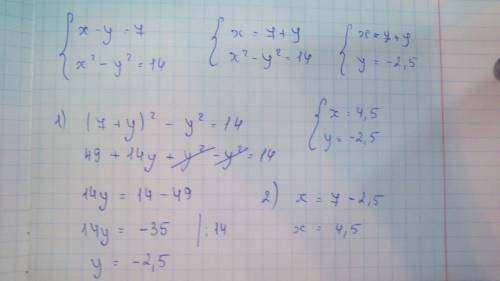 { x - y = 7
x² - y² = 14
{ x = 7 + y
x² - y² = 14
{ x = 7 + y
y = -2,5
1) (7 + y)² - y² = 14
49 + 14y + y² - y² = 14
14y = 14 - 49
14y = -35 | : 14
y = -2,5
{ x = 4,5
y = -2,5
2) x = 7 - 2,5
x = 4,5